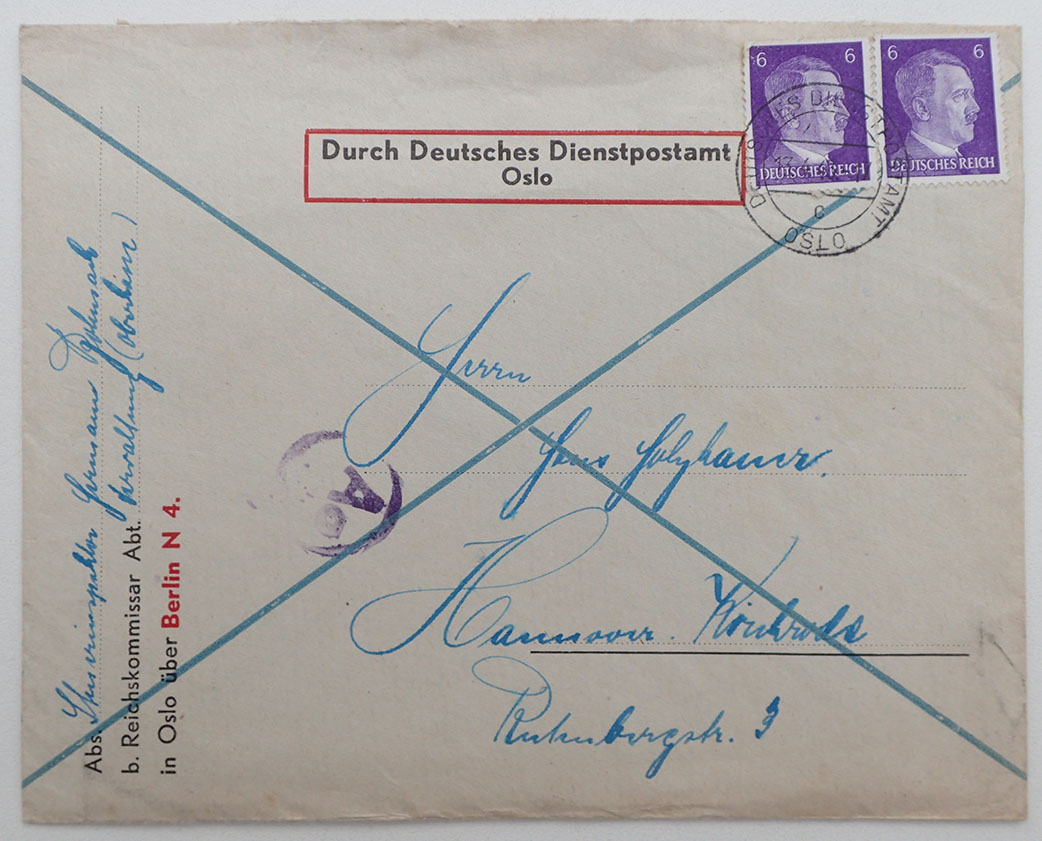 6 6
DEUTSCHES REICH
6 6
DEUTSCHES REICH
Durch Deutsches Dienstpostamt
Oslo
DEUTSCHES DIENSTPOSTAMT
OSLO
c
Herrn
Hans Holzhauer.
Hannover.
str. 3
A
Abs. Steuerinspektor Hermann
b. Reichskommissar Abt. Verwaltung
in Oslo über Berlin N 4.